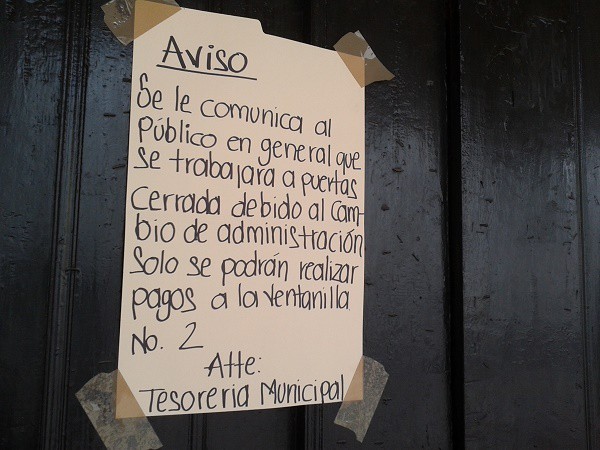 Aviso
Se le comunica al
Público en general que
se trabajara a puertas
Cerrada debido al Cam-
bio de administración
Solo se podrán realizar
pagos a la Ventanilla
No. 2
Atte:
Tesoreria Municipal